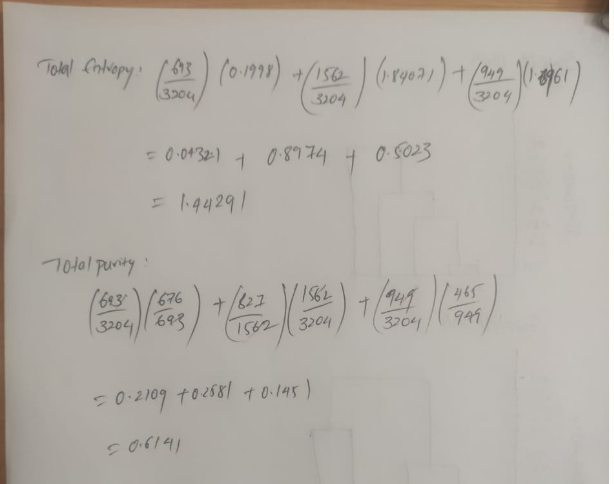 Total Entropy: (693/3204) (0.1998) + (1562/3204) (1.84071) + (949/3204) (1.6961)
= 0.04321 + 0.8974 + 0.5023
= 1.44291
Total purity:
(693/3204) (676/693) + (827/1562) (1562/3204) + (949/3204) (465/949)
= 0.2109 + 0.2581 + 0.1451
= 0.6141